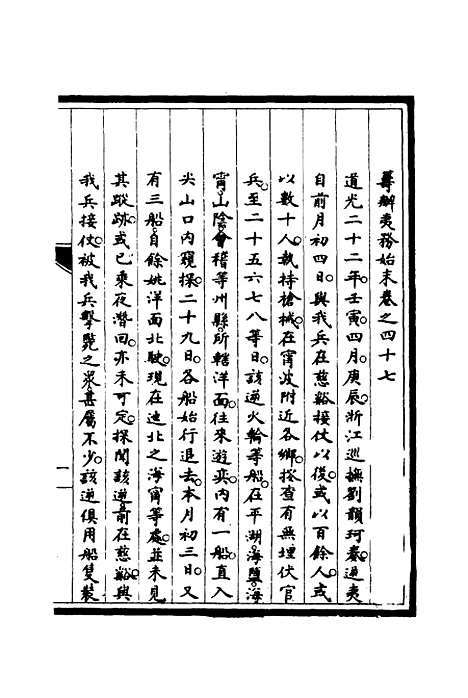 籌辦夷務始末卷之四十七
道光二十二年壬寅四月庚辰浙江巡撫劉韻珂奏逆夷
自前月初四日與我兵在慈谿接仗以後或以百餘人或
以數十人執持槍械在甯波附近各鄉搭查有無埋伏官
兵至二十五六七八等日該逆火輪等船在平湖海鹽海
甯山陰會稽等州縣所轄洋面往來遊奕內有一船直入
尖山口內窺探二十九日各船始行退去本月初三日又
有三船自餘姚洋面北駛現在迤北之海甯等處並未見
其蹤跡或已乘夜潛回亦未可定探聞該逆前在慈谿與
我兵接仗被我兵擊斃之眾甚屬不少該逆俱用船隻裝
一